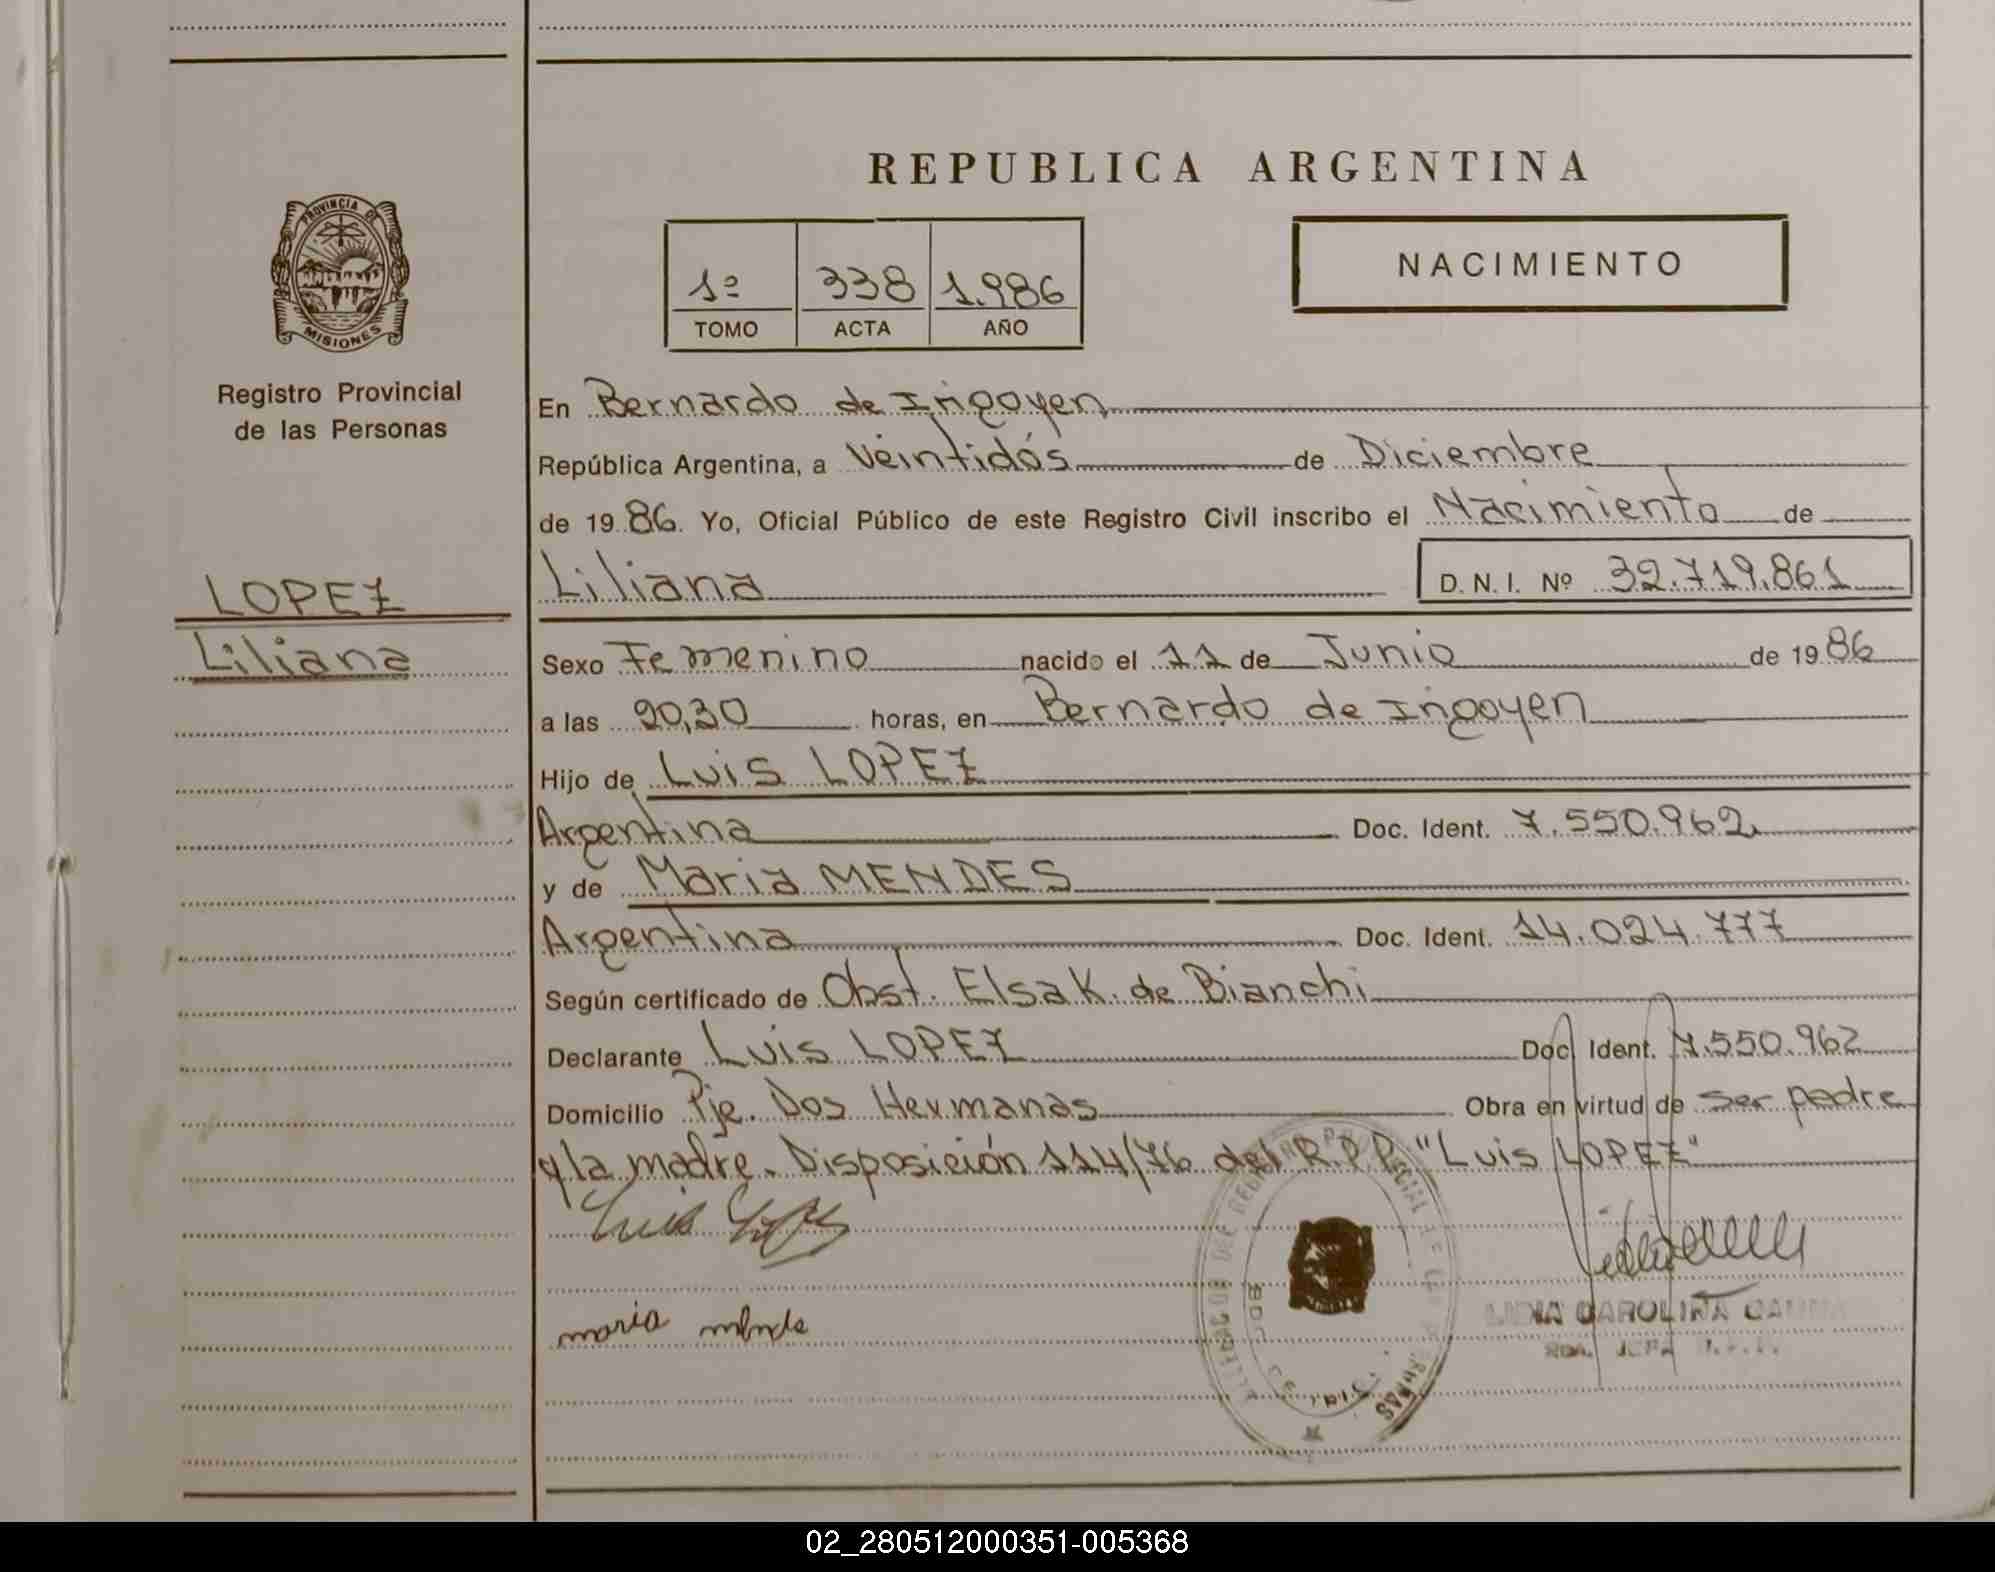 REPUBLICA ARGENTINA
PROVINCIA DE
MISIONES
Registro Provincial
de las Personas
NACIMIENTO
1º 338 1.986
TOMO ACTA AÑO
En Bernardo de Irigoyen
República Argentina, a Veintidós de Diciembre
de 19 86. Yo, Oficial Público de este Registro Civil inscribo el Nacimiento de
LOPEZ
Liliana
Liliana D. N. I. Nº 32.719.861
Sexo Femenino nacido el 11 de Junio de 19 86
a las 20,30 horas, en Bernardo de Irigoyen
Hijo de Luis LOPEZ
Argentina Doc. Ident. 7.550.962
y de Maria MENDES
Argentina Doc. Ident. 14.024.777
Según certificado de Obst. Elsa K. de Bianchi
Declarante Luis LOPEZ Doc. Ident. 7.550.962
Domicilio Pje. Dos Hermanas Obra en virtud de ser padre
y la madre. Disposición 114/76 del R.P.P. "Luis LOPEZ"
Luis Lopez
maria mende
LIDIA CAROLINA
02_280512000351-005368